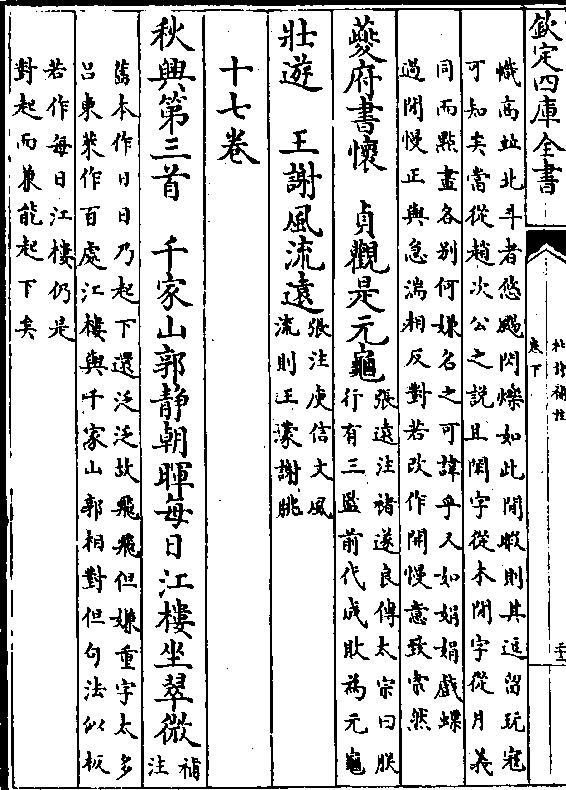 欽定四庫全書
杜詩補註
卷下
幟高並北斗者悠颺閃爍如此閒暇則其逗留玩寇
可知矣當從趙次公之說且閑字從木閒字從月義
同而點畫各別何嫌名之可諱乎又如娟娟戲蝶
過閒慢正與急湍相反對若改作開慢意致索然
夔府書懷　貞觀是元龜
張遠注褚遂良傳太宗曰朕
行有三監前代成敗為元龜
壯遊　王謝風流遠
張注庾信文風
流則王濛謝朓
十七卷
秋興第三首　千家山郭靜朝暉每日江樓坐翠微
補
注
舊本作日日乃起下還泛泛故飛飛但嫌重字太多
呂東萊作百處江樓與千家山郭相對但句法似板
若作每日江樓仍是
對起而兼能起下矣